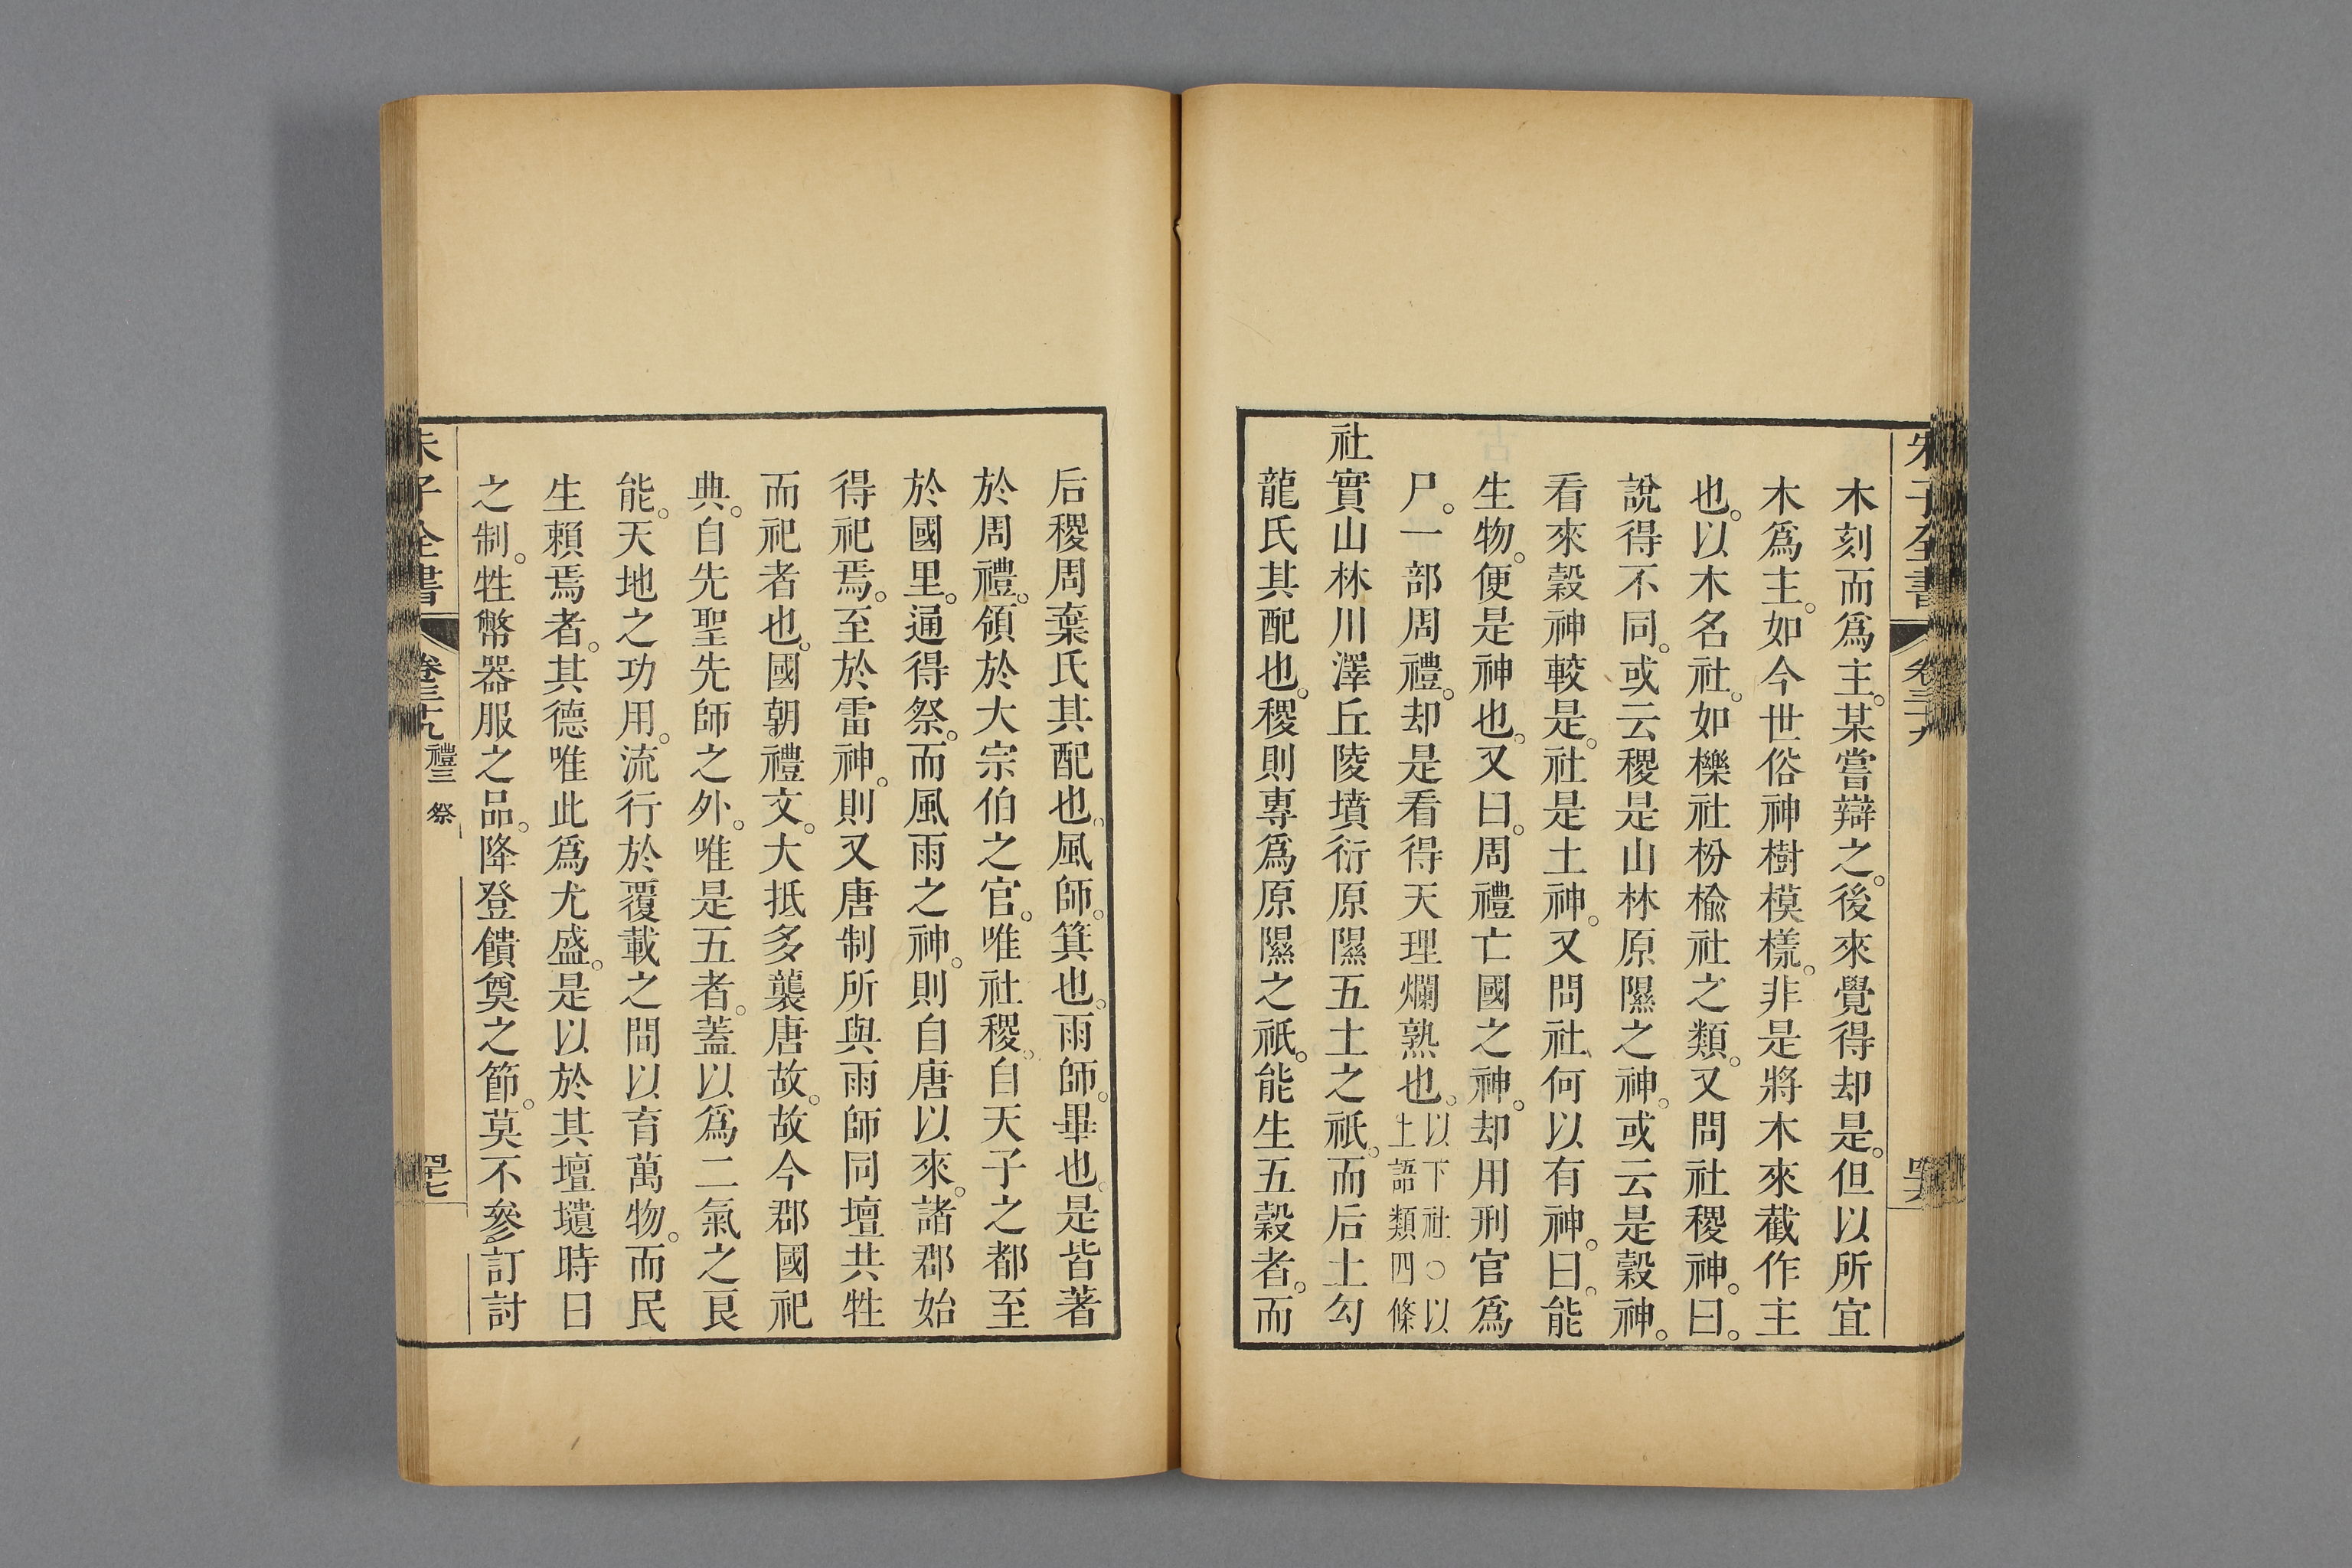 朱子全書 卷三十九 四十六
木刻而爲主。某嘗辯之。後來覺得却是。但以所宜
木爲主。如今世俗神樹模樣。非是將木來截作主
也。以木名社。如櫟社枌楡社之類。又問社稷神。曰。
說得不同。或云稷是山林原隰之神。或云是穀神。
看來穀神較是。社是土神。又問社何以有神。曰。能
生物。便是神也。又曰。周禮亡國之神。却用刑官爲
尸。一部周禮。却是看得天理爛熟也。以下社〇以
上語類四條
社實山林川澤丘陵墳衍原隰五土之祇。而后土勾
龍氏其配也。稷則專爲原隰之祇。能生五穀者。而
后稷周棄氏其配也。風師。箕也。雨師。畢也。是皆著
於周禮。領於大宗伯之官。唯社稷。自天子之都至
於國里。通得祭。而風雨之神。則自唐以來。諸郡始
得祀焉。至於雷神。則又唐制所與雨師同壇共牲
而祀者也。國朝禮文。大抵多襲唐故。故今郡國祀
典。自先聖先師之外。唯是五者。蓋以爲二氣之良
能。天地之功用。流行於覆載之間以育萬物。而民
生賴焉者。其德唯此爲尤盛。是以於其壇壝時日
之制。牲幣器服之品。降登饋奠之節。莫不參訂討
朱子全書 卷三十九 禮三 祭 四十七